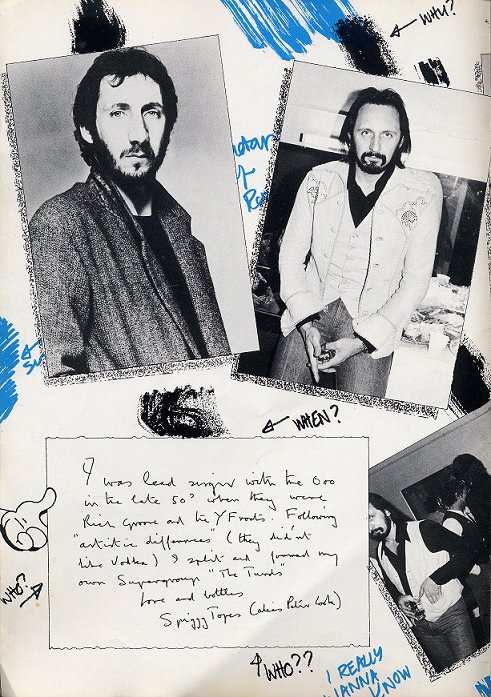 WHY?
WHEN?
I was lead singer with the Ooo
in the late 50s when they were
Rick Groove and the Y Fronts. Following
"artistic differences" (they didn't
like Vodka) I split and formed my
own Supergroup "The Turds"
Love and bottles
Spiggy Topes (alias Peter Cook)
WHO?
WHO??
I REALLY
WANNA KNOW